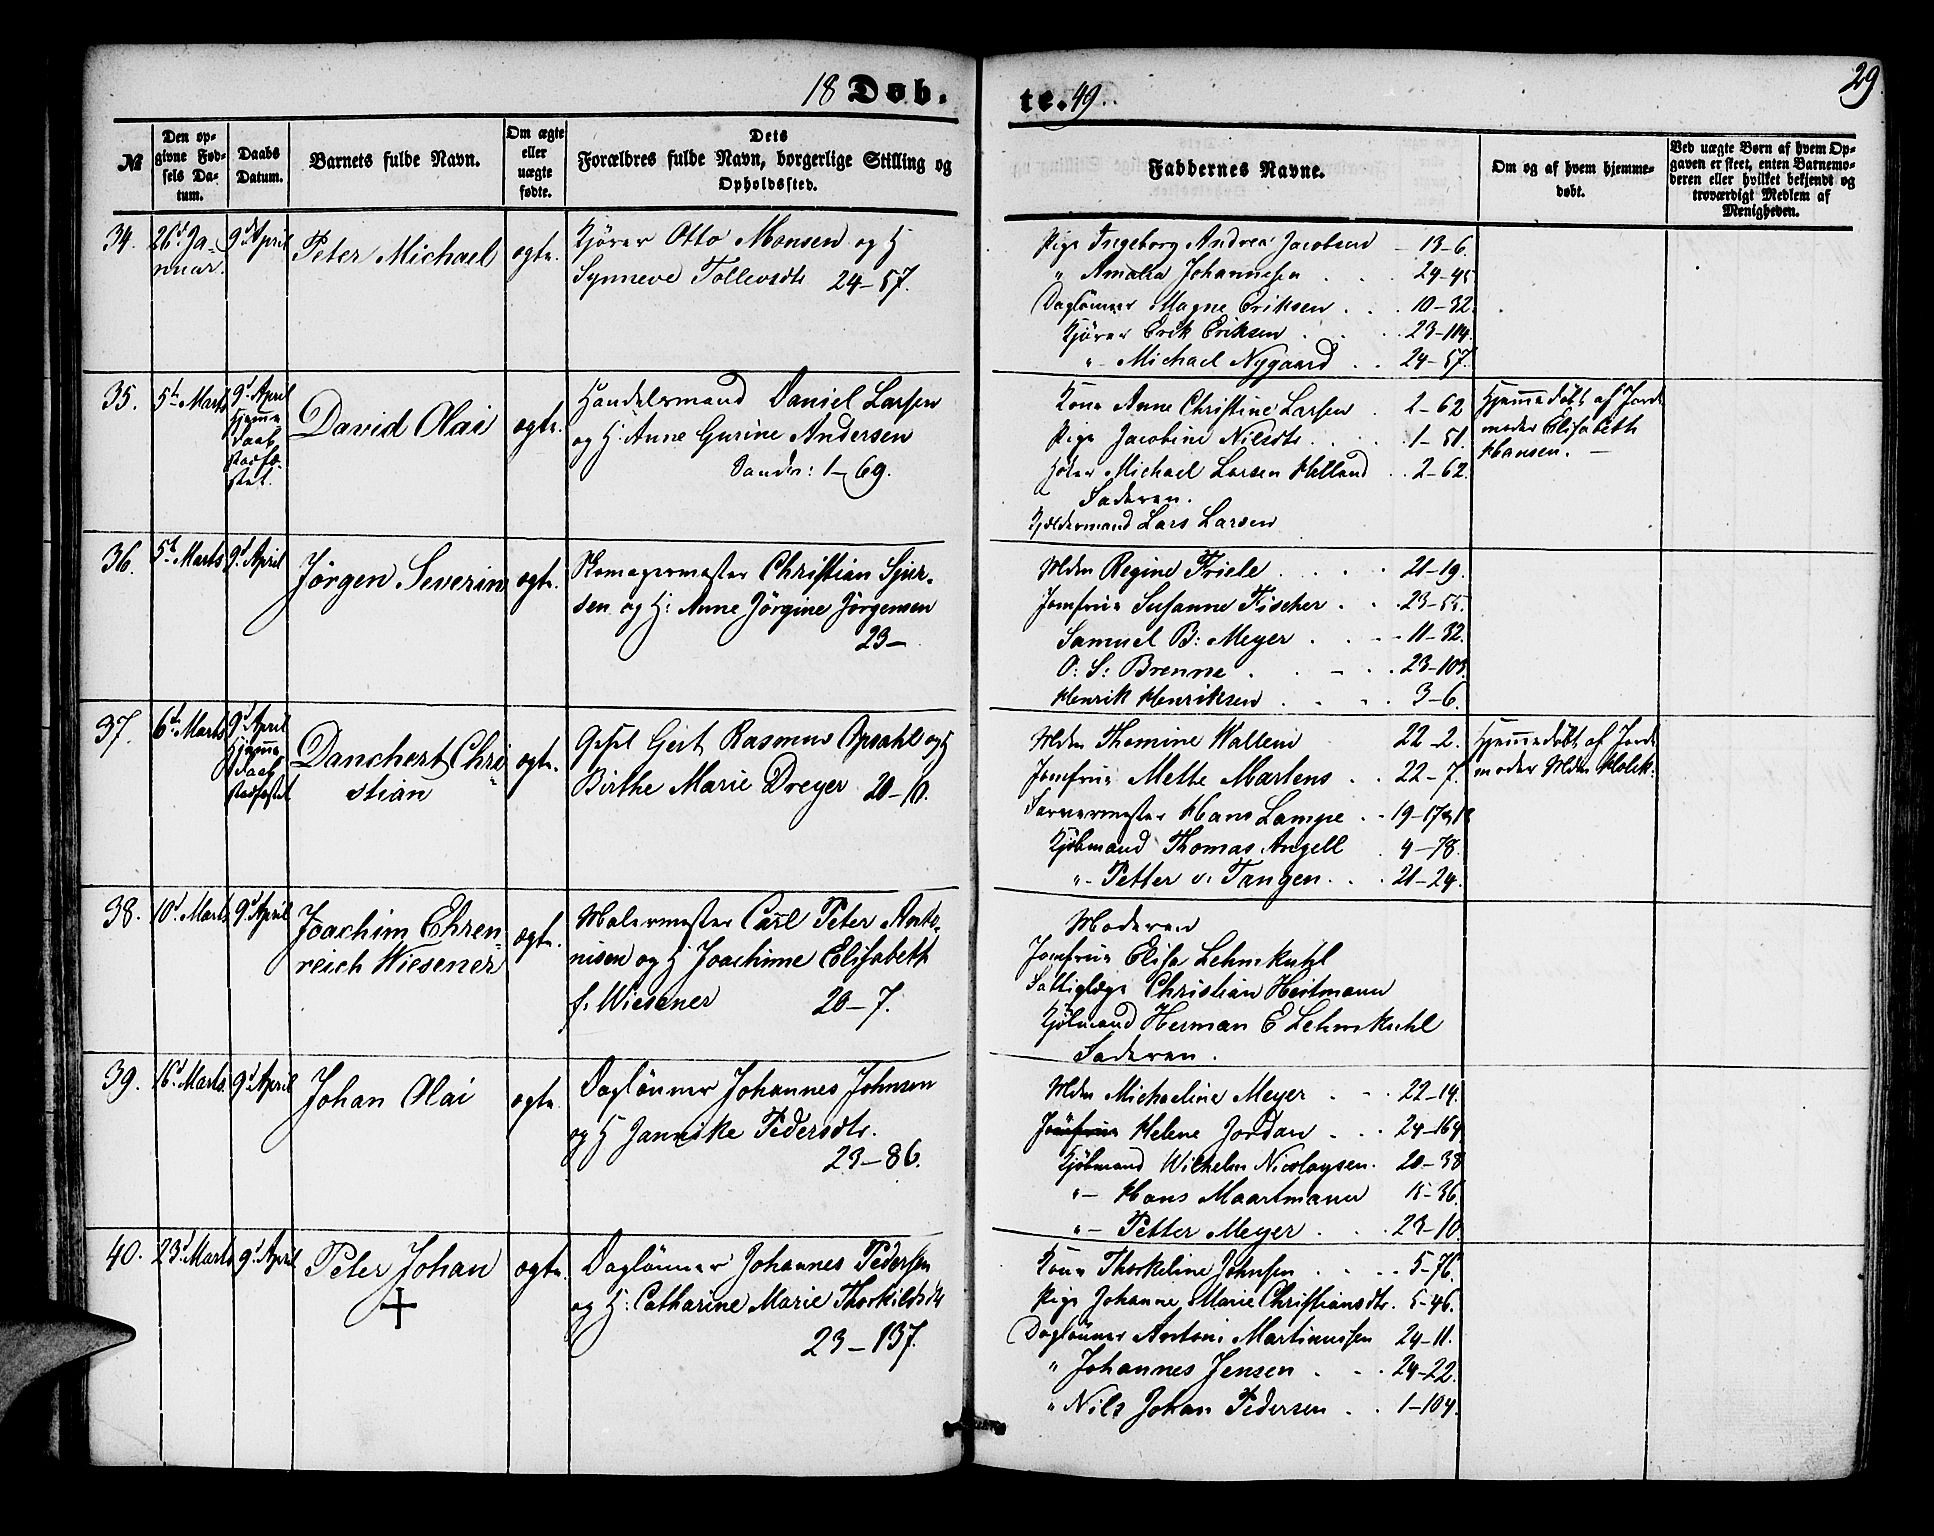 18 Døb-
te. 49.
29.
№
Den op-
givne Fød-
sels Da-
tum.
Daabs
Datum.
Barnets fulde Navn.
Om ægte
eller
uægte
fødte.
Dets
Forældres fulde Navn, borgerlige Stilling og
Opholdssted.
Faddernes Navne.
Om og af hvem hjemme-
døbt.
Ved uægte Børn af hvem Op-
gaven er skeet, enten Barnemo-
deren eller hvilket bekjendt og
troværdigt Medlem af
Menigheden.
34.
26d Ja-
nuar.
9d April
Peter Michael
ægte.
Kjører Otto Monsen og H
Synneve Tollevsdtr 24-57.
Pige Ingeborg Andrea Jacobsen - 13-6.
" Amalia Johannesen . . . 24-45
Daglönner Magne Eriksen . . . 10-32.
Kjører Erik Eriksen . . . 23-114.
"- Michael Nygaard . . 24-57.
35.
5d Marts
9d April
Hjemme
daab
stadfæ-
stet.
David Olai
ægte.
Handelsmand Daniel Larsen
og H: Anne Gurine Andersen
Sandv: 1-69.
Kone Anne Christine Larsen . 2-62
Pige Jacobine Nilsdtr . . . 1-51.
Høker Michael Larsen Helland . . 2-62.
Faderen.
Kjeldermand Lars Larsen
Hjemmedöbt af Jorde
moder Elisabeth
Hansen. —
36.
5d Marts
9d April
Jörgen Severin
ægte.
Skomagermester Christian Sjur-
sen og H: Anne Jörgine Jörgensen
23-
Mdm Regine Friele . . . . 21-19.
Jomfrue Susanne Fischer . . . 23-55.
Samuel B: Meyer . . . - 11-32.
O: S: Brenne . . - . 23-103.
Henrik Henriksen . . . . 3-6.
37.
6d Marts
9d April
Hjemme
daab
stadfæstet
Danchert Chri-
stian
ægte.
Gesel Gert Rasmus Opsahl og H
Birthe Marie Dreyer 20-10.
Mdm Thomine Wallem 22-2.
Jomfrue Mette Martens . . 22-7.
Farvermester Hans Lampe . . 19-17&18
Kjöbmand Thomas Angell . 4-78.
"- Petter v. Tangen . . . 21-24.
Hjemmedöbt af Jorde
moder Mdm Holck.
38.
10d Marts
9d April
Joachim Ehren-
reich Wiesener
ægte.
Malermester Carl Peter Anto-
nisen og H Joachime Elisabeth
f. Wiesener 20-7.
Moderen
Jomfrue Elisa Lehmkuhl
Christian Heitmann
Kjöbmand Herman E Lehmkuhl
Faderen.
39.
16d Marts
9d April
Johan Olai
ægte.
Daglönner Johannes Johnsen
og H Jannike Pedersdtr.
23-86.
Mdm Michaeline Meyer . - . 22-19.
Jomfrue Helene Jordan . . . 24-164
Kjöbmand Wilhelm Nicolaysen . 20-38
"- Hans Maartmann 15-36.
"- Petter Meyer . . . 23-10.
40.
23d Marts
9d April
Peter Johan
+
ægte.
Daglönner Johannes Pedersen
og H: Catharine Marie Thorkildsdtr
23-137.
Kone Thorkeline Johnsen . . . . 5-76.
Pige Johanne Marie Christiansdtr. 5-46.
Daglönner Antoni Martinussen 24-11.
" Johannes Jensen . . . 24-22.
" Nils Johan Pedersen . . 1-104.